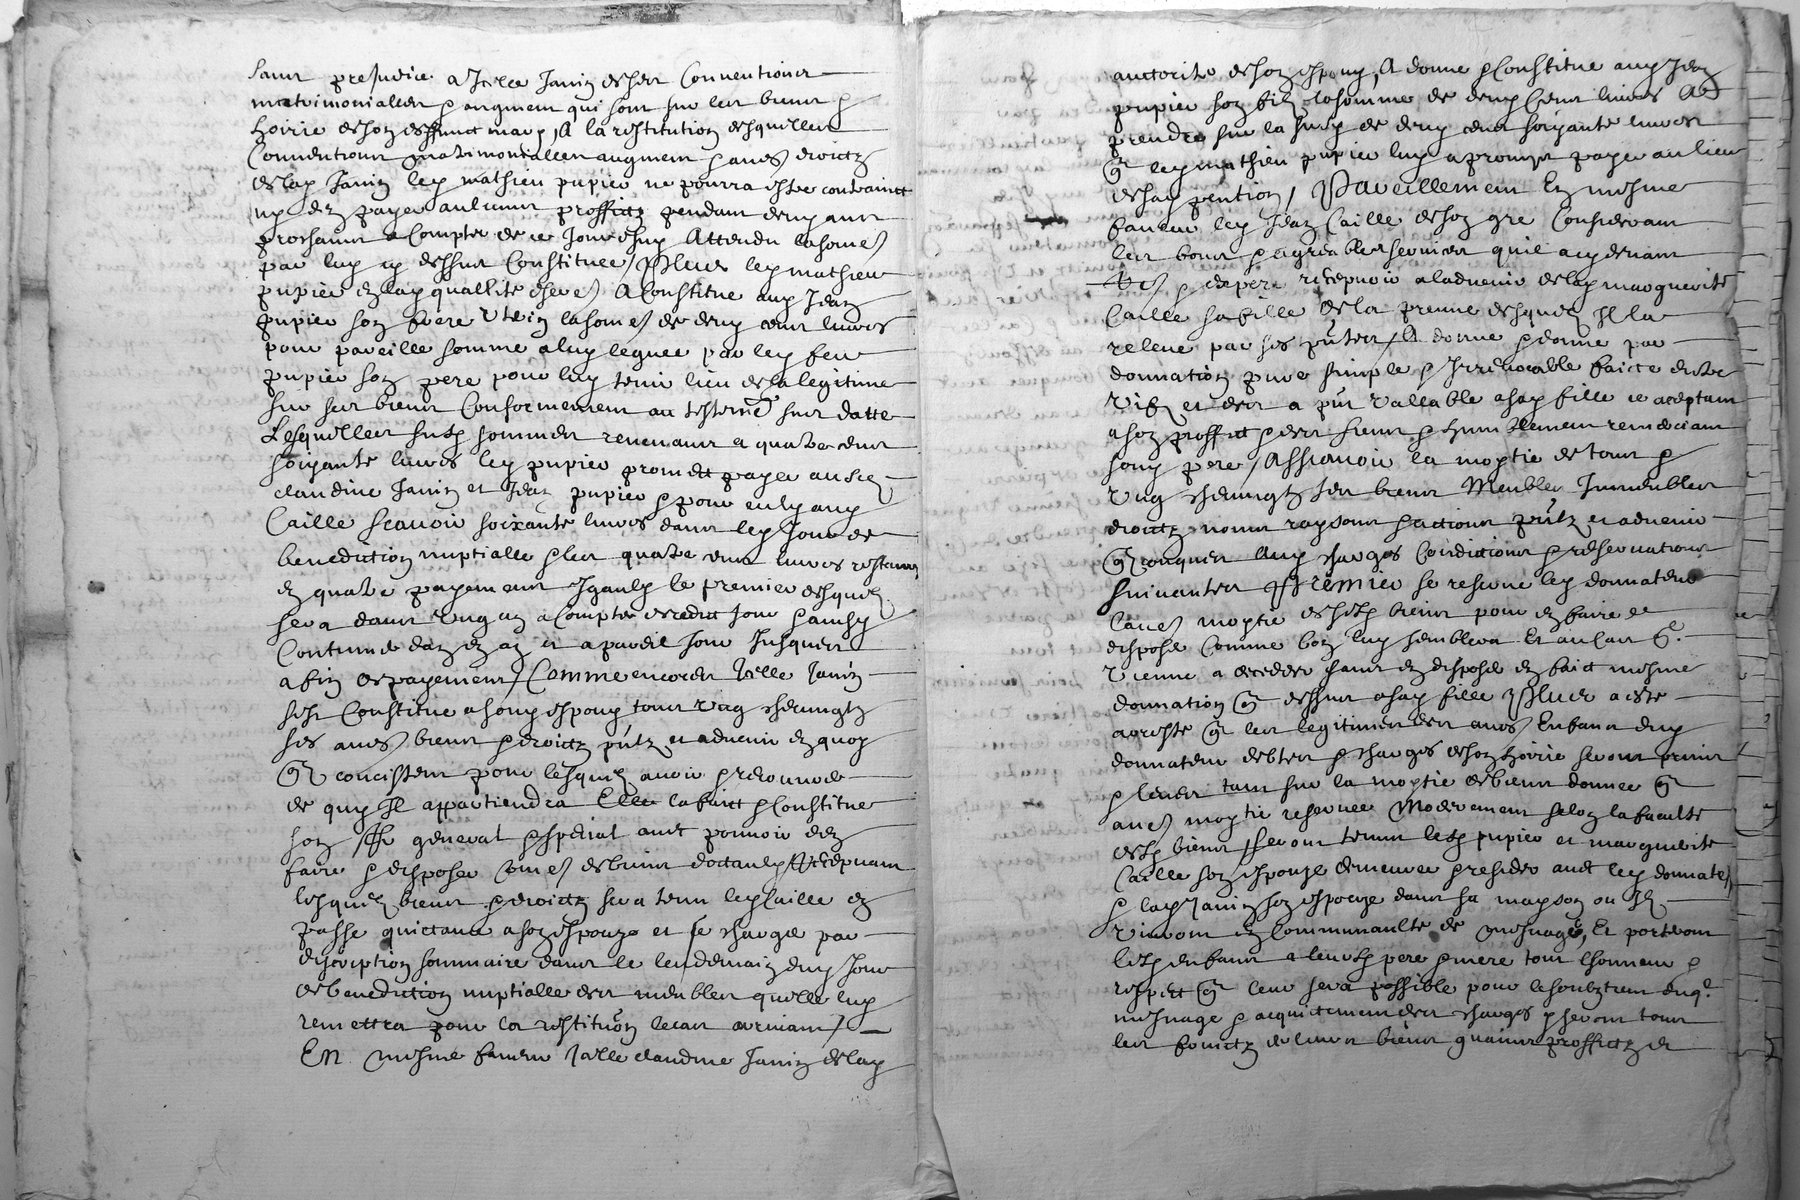 sans prejudice a Icelle Janin de ses Conventions
matrimonialles & augment qui sont sur les biens &
hoirie de son deffunct mary, A la restitution desquelles
Conventions matrimonialles augment & aues droictz
de lad Janin led mathieu pupier ne pourra estre contrainct
ny den payer aulcuns proffictz pendant deux ans
prochains a Compter de ce Jourdhuy Attendu la some
par luy cy dessus Constituee / Plus led mathieu
pupier en lad quallite dhere A Constitue aud Jean
pupier son frere Uterin la some de deux cens livres
pour pareille somme a luy leguee par led feu
pupier son pere pour luy tenir lieu de la legitime
sur ses biens Conformement au testemt sus datte
Lesquelles susd sommes revenans a quatre cens
soixante livres led pupier promect payer ausd
claudine Janin et Jean pupier & pour eulx aud
Caille scauoir soixante livres dans led Jour de
benediction nuptialle & les quatre cens livres restans
en quatre payemens Igaulx le premier desquelz
sera dans Ung an a Compter dudict Jour & ainsy
Continue dan en an et a pareil Jour Jusques
a fin de payement / Comme encores Icelle Janin
sest Constitue a sond espoux tous Ung chescungtz
ses aues biens & droictz pntz et aduenir en quoy
que concistent pour lesquelz auoir & recouurer
de quy Il appartiendra Elle la faict & Constitue
son pr general & special auec pouvoir den
faire & disposer Come de biens doctaulx / Recepuant
lesquelz biens & droictz sera tenu led Caille en
passe quictance a son espouze et se charge par
description sommaire dans le lendemain dud Jour
de benediction nuptialle des meubles quelle luy
remettra pour la restituon le cas arrivant /
En mesme faueur Icelle claudine Janin de lad
auctorite de son espoux, A donne & Constitue aud Jean
pupier son filz la somme de deux cens livres A
prendre sur la susd de deux cens soixante livres
que led mathieu pupier luy a promis payer au lieu
de sad pention / Pareillement En mesme
faueur led Jean Caille de son gre Considerant
les bons & agreables services quil a cy deuant
& espere recepuoir a laduenir de lad marguerite
Caille sa fille de la preuue desquelz Il la
releue par ses pntes / A donne & donne par
donnation pure simple & Irreuocable faicte entre
Vifz et des a pnt Vallable a sad fille ce aceptant
a son proffict & des siens & humblement remerciant
sond pere / Asscauoir la moytie de tous &
Ung chescungtz ses biens Meubles Immeubles
droictz noms raysons & actions pntz et aduenir
quelconques Aux charges Condictions & reseruations
suiuantes Premier se reserue led donnateur
laue moytie de sesd biens pour en faire et
dispose Comme bon luy semblera Et au cas quil
Vienne a decedder sans en dispose en faict mesme
donnation que dessus a sad fille Plus a este
arreste que les legitimes des aues Enfans dud
donnateur debtes & charges de son hoirie seront prins
& leues tant sur la moytie de biens donnee que
aue moytie reseruee Moderement selon la faculte
desd biens / seront tenus lesd pupier et marguerite
Caille son espouze demeurer & resider auec led donnateur
& lad Janin son espouze dans sa mayson ou Ilz
Viuront en Communaulte de mesnage, Et porteront
lesd enfans a leursd pere & mere tout lhonneur &
respect que leur sera possible pour le soubztien dud
mesnage & acquictement des charges & seront tous
les fruictz de leurs biens gains & proffictz